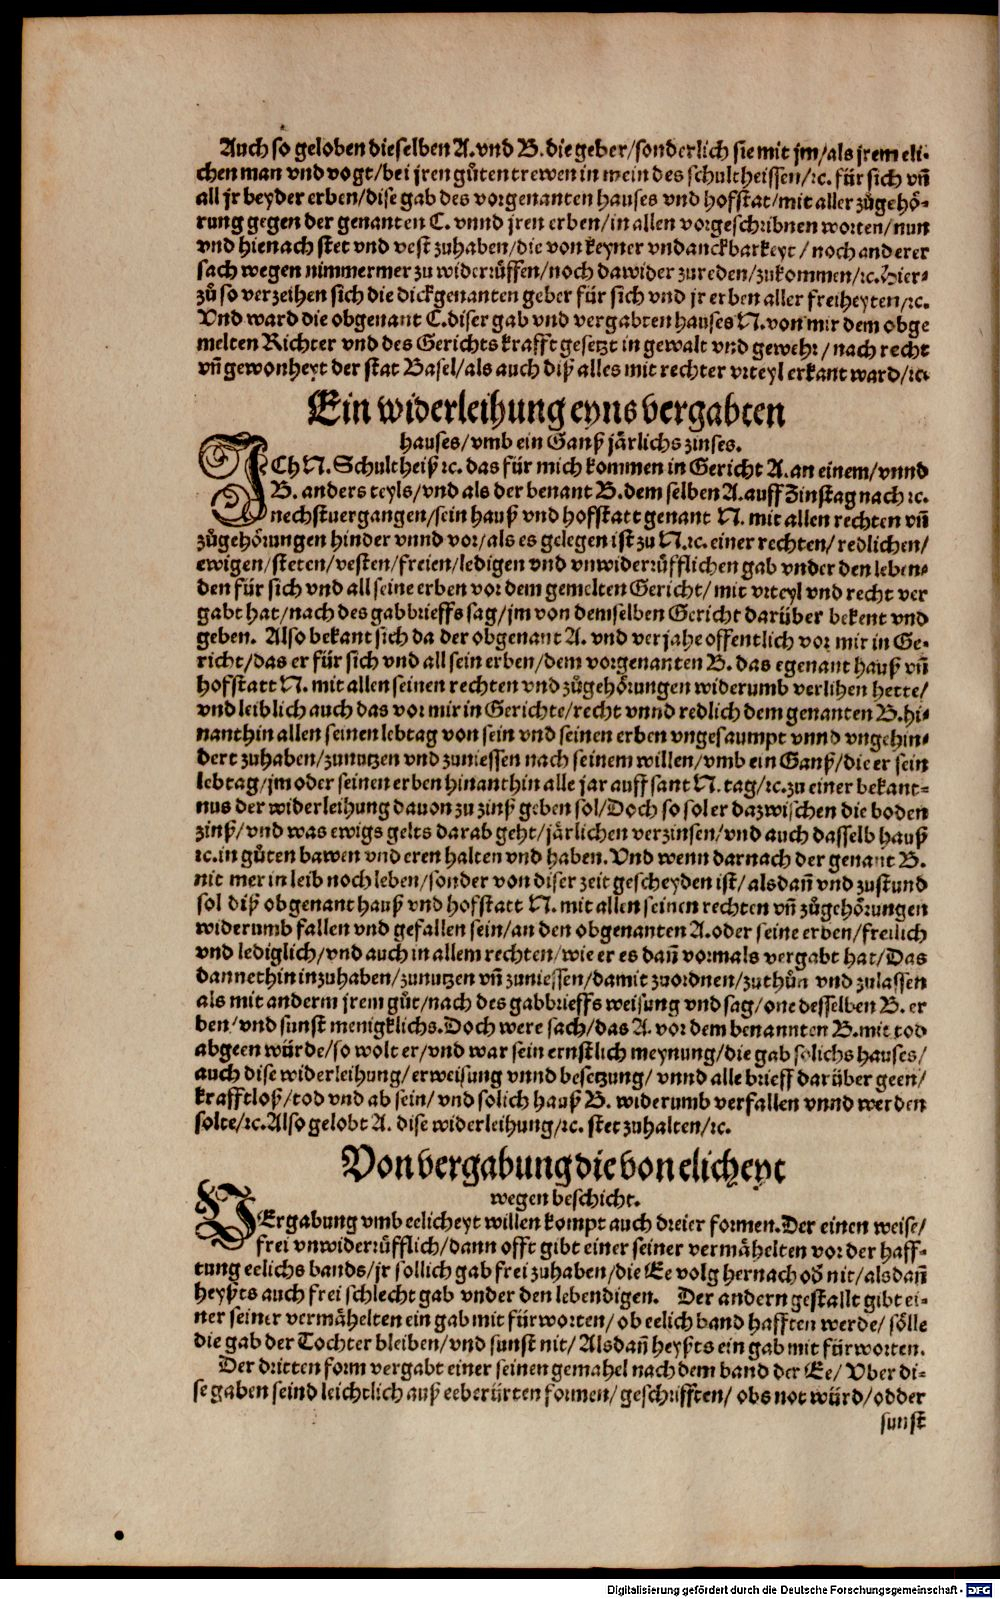 Auch so geloben dieselben A. vnd B. die geber/sonderlich sie mit jm/als jrem eli⸗
chen man vnd vogt/bei jren gůten trewen in mein des schultheissen/ꝛc. für sich vñ
all jr beyder erben/dise gab des vorgenanten hauses vnd hofstat/mit aller zůgehö⸗
rung gegen der genanten C. vnnd jren erben/in allen vorgeschribnen worten/nun
vnd hienach stet vnd vest zuhaben/die von keyner vndanckbarkeyt/noch anderer
sach wegen nimmermer zu widerrůffen/noch dawider zureden/zukommen/ꝛc. Hier⸗
zů so verzeihen sich die dickgenanten geber für sich vnd jr erben aller freiheyten/ꝛc.
Vnd ward die obgenant C. diser gab vnd vergabten hauses N. von mir dem obge
melten Richter vnd des Gerichts krafft gesetzt in gewalt vnd gewehr/nach recht
vñ gewonheyt der stat Basel/als auch diß alles mit rechter vrteyl erkant ward/ꝛc.
Ein widerleihung eyns vergabten
hauses/vmb ein Ganß järlichs zinses.
ICh N. Schultheiß ꝛc. das für mich kommen in Gericht A. an einem/vnnd
B. anders teyls/vnd als der benant B. dem selben A. auff Zinstag nach ꝛc.
nechstuergangen/sein hauß vnd hofstatt genant N. mit allen rechten vñ
zůgehörungen hinder vnnd vor/als es gelegen ist zu N. ꝛc. einer rechten/redlichen/
ewigen/steten/vesten/freien/ledigen vnd vnwiderrůfflichen gab vnder den leben⸗
den für sich vnd all seine erben vor dem gemelten Gericht/mit vrteyl vnd recht ver
gabt hat/nach des gabbrieffs sag/jm von demselben Gericht darüber bekent vnd
geben. Also bekant sich da der obgenant A. vnd verjahe offentlich vor mir in Ge⸗
richt/das er für sich vnd all sein erben/dem vorgenanten B. das egenant hauß vñ
hofstatt N. mit allen seinen rechten vnd zůgehörungen widerumb verlihen hette/
vnd leiblich auch das vor mir in Gerichte/recht vnnd redlich dem genanten B. hi⸗
nanthin allen seinen lebtag von sein vnd seinen erben vngesaumpt vnnd vngehin⸗
dert zuhaben/zunutzen vnd zuniessen nach seinem willen/vmb ein Ganß/die er sein
lebtag/jm oder seinen erben hinanthin alle jar auff sant N. tag/ꝛc. zu einer bekant⸗
nus der widerleihung dauon zu zinß geben sol/Doch so sol er dazwischen die boden
zinß/vnd was ewigs gelts darab geht/järlichen verzinsen/vnd auch dasselb hauß
ꝛc. in gůten bawen vnd eren halten vnd haben. Vnd wenn darnach der genant B.
nit mer in leib noch leben/sonder von diser zeit gescheyden ist/alsdañ vnd zustund
sol diß obgenant hauß vnd hofstatt N. mit allen seinen rechten vñ zůgehörungen
widerumb fallen vnd gefallen sein/an den obgenanten A. oder seine erben/freilich
vnd lediglich/vnd auch in allem rechten/wie er es dañ vormals vergabt hat/Das
dannethin inzuhaben/zunutzen vñ zuniessen/damit zuordnen/zuthůn vnd zulassen
als mit anderm jrem gůt/nach des gabbrieffs weisung vnd sag/one desselben B. er
ben/vnd sunst menigklichs. Doch were sach/das A. vor dem benannten B. mit tod
abgeen würde/so wolt er/vnd war sein ernstlich meynung/die gab solichs hauses/
auch dise widerleihung/erweisung vnnd besetzung/vnnd alle brieff darüber geen/
krafftloß/tod vnd ab sein/vnd solich hauß B. widerumb verfallen vnnd werden
solte/ꝛc. Also gelobt A. dise widerleihung/ꝛc. stet zuhalten/ꝛc.
Von vergabung die von elicheyt
wegen beschicht.
VErgabung vmb eelicheyt willen kompt auch dreier formen. Der einen weise/
frei vnwiderrůfflich/dann offt gibt einer seiner vermähelten vor der haff⸗
tung eelichs bands/jr sollich gab frei zuhaben/die Ee volg hernach oď nit/alsdañ
heyßts auch frei schlecht gab vnder den lebendigen. Der andern gestallt gibt ei⸗
ner seiner vermähelten ein gab mit fürworten/ob eelich band hafften werde/sölle
die gab der Tochter bleiben/vnd sunst nit/Alsdañ heyßts ein gab mit fürworten.
Der dritten form vergabt einer seinen gemahel nach dem band der Ee/Vber di⸗
se gaben seind leichtlich auß eeberürten formen/geschrifften/obs not würd/odder
sunst
Digitalisierung gefördert durch die Deutsche Forschungsgemeinschaft - DFG